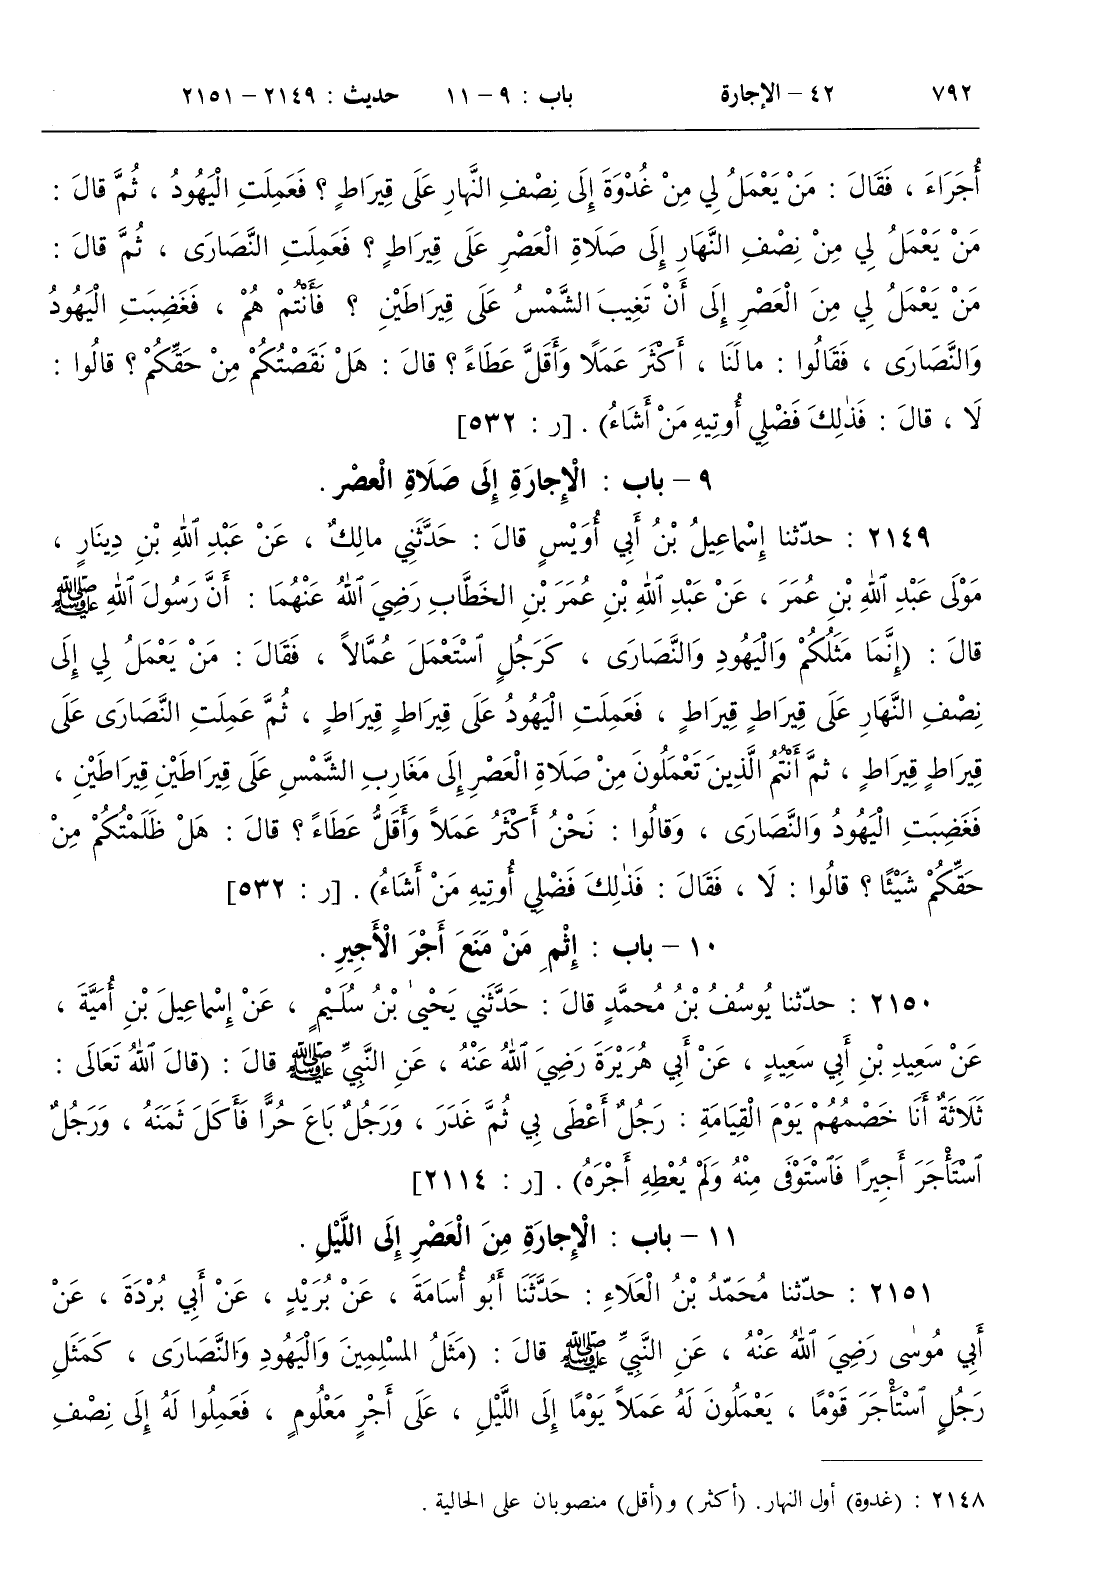 ٧٩٢ ٤٢ – الإجارة باب : ٩ – ١١ حديث : ٢١٤٩ – ٢١٥١
أُجَرَاءَ ، فَقَالَ : مَنْ يَعْمَلُ لِي مِنْ غُدْوَةَ إِلَى نِصْفِ النَّهَارِ عَلَى قِيرَاطٍ ؟ فَعَمِلَتِ الْيَهُودُ ، ثُمَّ قالَ :
مَنْ يَعْمَلُ لِي مِنْ نِصْفِ النَّهَارِ إِلَى صَلَاةِ الْعَصْرِ عَلَى قِيرَاطٍ ؟ فَعَمِلَتِ النَّصَارَى ، ثُمَّ قالَ :
مَنْ يَعْمَلُ لِي مِنَ الْعَصْرِ إِلَى أَنْ تَغِيبَ الشَّمْسُ عَلَى قِيرَاطَيْنِ ؟ فَأَنْتُمْ هُمْ ، فَغَضِبَتِ الْيَهُودُ
وَالنَّصَارَى ، فَقَالُوا : مالَنَا ، أَكْثَرَ عَمَلًا وَأَقَلَّ عَطَاءً ؟ قالَ : هَلْ نَقَصْتُكُمْ مِنْ حَقِّكُمْ ؟ قالُوا :
لَا ، قالَ : فَذٰلِكَ فَضْلِي أُوتِيهِ مَنْ أَشَاءُ) . [ر : ٥٣٢]
٩ – باب : الْإِجارَةِ إِلَى صَلَاةِ الْعَصْرِ .
٢١٤٩ : حدّثنا إِسْماعِيلُ بْنُ أَبِي أُوَيْسٍ قالَ : حَدَّثَنِي مالِكٌ ، عَنْ عَبْدِ ٱللهِ بْنِ دِينَارٍ ،
مَوْلَى عَبْدِ ٱللهِ بْنِ عُمَرَ ، عَنْ عَبْدِ ٱللهِ بْنِ عُمَرَ بْنِ الخَطَّابِ رَضِيَ ٱللهُ عَنْهُمَا : أَنَّ رَسُولَ ٱللهِ ﷺ
قالَ : (إِنَّمَا مَثَلُكُمْ وَالْيَهُودِ وَالنَّصَارَى ، كَرَجُلٍ ٱسْتَعْمَلَ عُمَّالاً ، فَقَالَ : مَنْ يَعْمَلُ لِي إِلَى
نِصْفِ النَّهَارِ عَلَى قِيرَاطٍ قِيرَاطٍ ، فَعَمِلَتِ الْيَهُودُ عَلَى قِيرَاطٍ قِيرَاطٍ ، ثُمَّ عَمِلَتِ النَّصَارَى عَلَى
قِيرَاطٍ قِيرَاطٍ ، ثمَّ أَنْتُمُ الَّذِينَ تَعْمَلُونَ مِنْ صَلَاةِ الْعَصْرِ إِلَى مَغَارِبِ الشَّمْسِ عَلَى قِيرَاطَيْنِ قِيرَاطَيْنِ ،
فَغَضِبَتِ الْيَهُودُ وَالنَّصَارَى ، وَقالُوا : نَحْنُ أَكْثَرُ عَمَلاً وَأَقَلُّ عَطَاءً ؟ قالَ : هَلْ ظَلَمْتُكُمْ مِنْ
حَقِّكُمْ شَيْئًا ؟ قالُوا : لَا ، فَقَالَ : فَذٰلِكَ فَضْلِي أُوتِيهِ مَنْ أَشَاءُ) . [ر : ٥٣٢]
١٠ – باب : إِثْمِ مَنْ مَنَعَ أَجْرَ الْأَجِيرِ .
٢١٥٠ : حدّثنا يُوسُفُ بْنُ مُحمَّدٍ قالَ : حَدَّثَنِي يَحْيىٰ بْنُ سُلَيْمٍ ، عَنْ إِسْماعِيلَ بْنِ أُمَيَّةَ ،
عَنْ سَعِيدِ بْنِ أَبِي سَعِيدٍ ، عَنْ أَبِي هُرَيْرَةَ رَضِيَ ٱللهُ عَنْهُ ، عَنِ النَّبِيِّ ﷺ قالَ : (قالَ ٱللهُ تَعَالَى :
ثَلَاثَةٌ أَنَا خَصْمُهُمْ يَوْمَ الْقِيَامَةِ : رَجُلٌ أَعْطَى بِي ثُمَّ غَدَرَ ، وَرَجُلٌ بَاعَ حُرًّا فَأَكَلَ ثَمَنَهُ ، وَرَجُلٌ
ٱسْتَأْجَرَ أَجِيرًا فَٱسْتَوْفَى مِنْهُ وَلَمْ يُعْطِهِ أَجْرَهُ) . [ر : ٢١١٤]
١١ – باب : الْإِجارَةِ مِنَ الْعَصْرِ إِلَى اللَّيْلِ .
٢١٥١ : حدّثنا مُحَمَّدُ بْنُ الْعَلَاءِ : حَدَّثَنَا أَبُو أُسَامَةَ ، عَنْ بُرَيْدٍ ، عَنْ أَبِي بُرْدَةَ ، عَنْ
أَبِي مُوسٰى رَضِيَ ٱللهُ عَنْهُ ، عَنِ النَّبِيِّ ﷺ قالَ : (مَثَلُ المُسْلِمِينَ وَالْيَهُودِ وَالنَّصَارَى ، كَمَثَلِ
رَجُلٍ ٱسْتَأْجَرَ قَوْمًا ، يَعْمَلُونَ لَهُ عَمَلاً يَوْمًا إِلَى اللَّيْلِ ، عَلَى أَجْرٍ مَعْلُومٍ ، فَعَمِلُوا لَهُ إِلَى نِصْفِ
٢١٤٨ : (غدوة) أول النهار. (أكثر) و(أقل) منصوبان على الحالية .